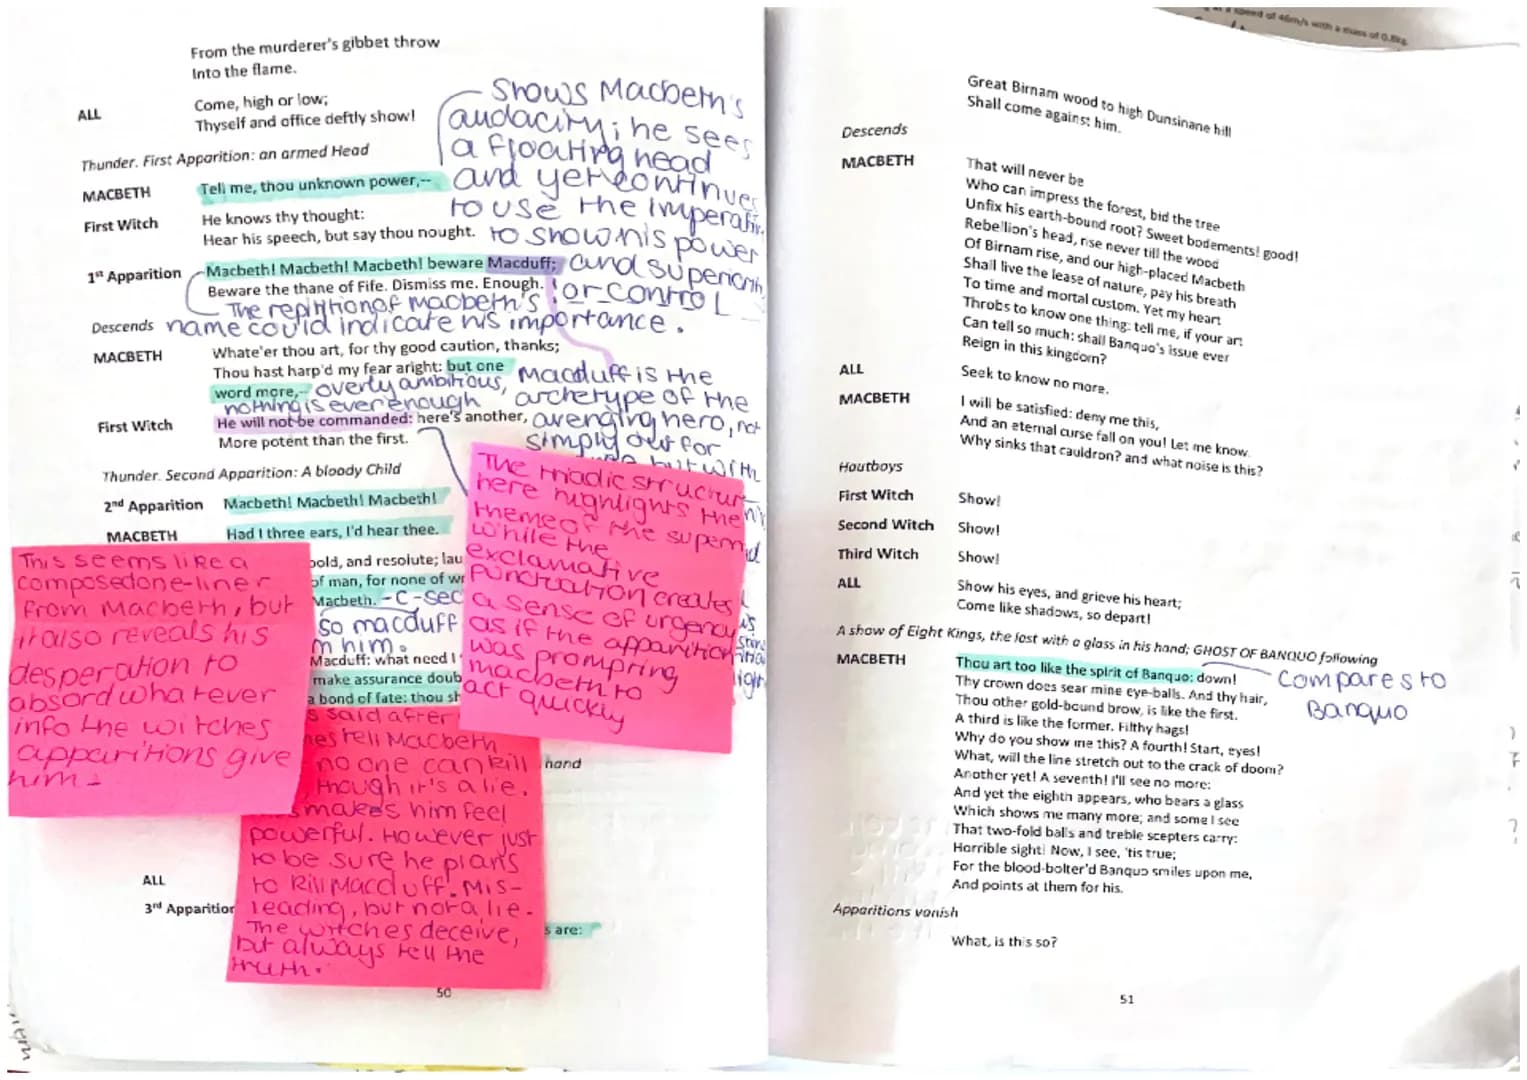 From the murderer's gibbet throw
Into the flame.
ALL Come, high or low;
Thyself and office deftly show!
Thunder. First Apparition: an armed Head
MACBETH Tell me, thou unknown power,--
First Witch He knows thy thought:
Hear his speech, but say thou nought.
1st Apparition Macbeth! Macbeth! Macbeth! beware Macduff;
Beware the thane of Fife. Dismiss me. Enough.
Descends
MACBETH Whate'er thou art, for thy good caution, thanks;
Thou hast harp'd my fear aright: but one
word more,--
First Witch He will not be commanded: here's another,
More potent than the first.
Thunder. Second Apparition: A bloody Child
2nd Apparition Macbeth! Macbeth! Macbeth!
MACBETH Had I three ears, I'd hear thee.
bold, and resolute; lau
of man, for none of
Macbeth. -C-sec
so macduff
him.
Macduff: what need I
make assurance doub
a bond of fate: thou sh
hand
ALL
3rd Apparition
are:
50
Shows Macbeth's
audacity; he sees
a floating head
and yet continues
to use the
to show his power
and
or control
The repitition of macbeth's
name could indicate his importance.
overly ambitious,
nothing is ever enough
Macduff is the
archetype of the
avenging hero, not
simply out for
but with
This seems like a
composed one-liner
from Macbeth, but
it also reveals his
desperation to
absord whatever
info the witches
apparitions give
him-
The triadic
here highlights the
theme of the
while the
exclamative
punctuation creates
a sense of urgency
as if the apparition
was prompting
macbeth to
act quickly
said after
tell Macbeth
no one can kill
though it's a lie.
makes him feel
powerful. However just
to be sure he plans
to kill Macduff. Mis-
leading, but not a lie-
The witches deceive,
but always tell the
truth.
speed of 46m/s with a mass of 0.8kg.
Great Birnam wood to high Dunsinane hill
Shall come against him.
Descends
MACBETH That will never be
Who can impress the forest, bid the tree
Unfix his earth-bound root? Sweet bodements! good!
Rebellion's head, rise never till the wood
Of Birnam rise, and our high-placed Macbeth
Shall live the lease of nature, pay his breath
To time and mortal custom. Yet my heart
Throbs to know one thing: tell me, if your art
Can tell so much: shall Banquo's issue ever
Reign in this kingdom?
ALL Seek to know no more.
MACBETH I will be satisfied: deny me this,
And an eternal curse fall on you! Let me know.
Why sinks that cauldron? and what noise is this?
Hautboys
First Witch Show!
Second Witch Show!
Third Witch Show!
ALL Show his eyes, and grieve his heart;
Come like shadows, so depart!
A show of Eight Kings, the last with a glass in his hand; GHOST OF BANQUO following
MACBETH Thou art too like the spirit of Banquo: down!
Thy crown does sear mine eye-balls. And thy hair,
Thou other gold-bound brow, is like the first.
A third is like the former. Filthy hags!
Why do you show me this? A fourth! Start, eyes!
What, will the line stretch out to the crack of doom?
Another yet! A seventh! I'll see no more:
And yet the eighth appears, who bears a glass
Which shows me many more; and some I see
That two-fold balls and treble scepters carry:
Horrible sight! Now, I see, 'tis true;
For the blood-bolter'd Banquo smiles upon me,
And points at them for his.
Apparitions vanish
What, is this so?
compares to
Banquo
51